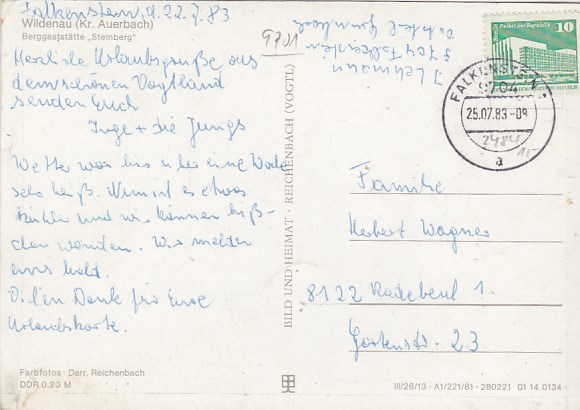 Falkenstein, d. 22.7.83
Wildenau (Kr. Auerbach)
Berggaststätte „Steinberg"
Herzliche Urlaubsgrüße aus
dem schönen Vogtland
senden Euch
Inge + die Jungs
Wetter war bis über eine Woche
sehr heiß. Nun ist es etwas
kühler und wir können biß-
chen wandern. Wir melden
uns bald.
Vielen Dank für Eure
Urlaubskarte.
Farbfotos: Darr, Reichenbach
DDR 0,20 M
BILD UND HEIMAT · REICHENBACH (VOGTL)
9701
J. Lehmann
9704 Falkenstein
10
FALKENSTEIN
9704
25.07.83-09
a
Familie
Herbert Wagner
8122 Radebeul 1.
Gartenstr. 23
III/26/13 · A1/221/81 · 280221 01 14 0134